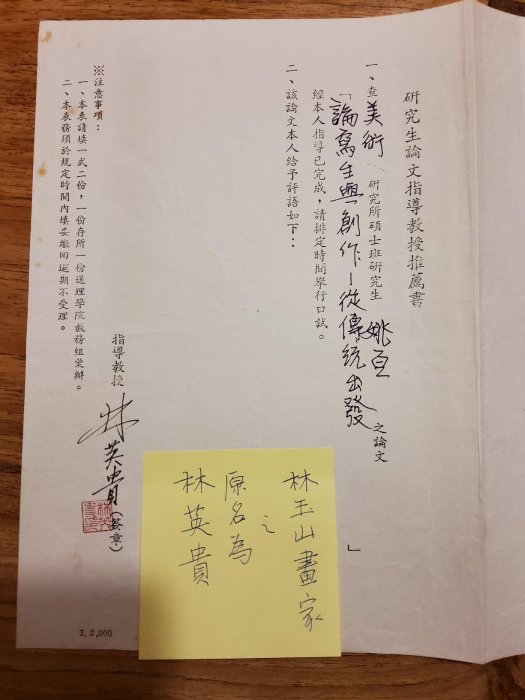 研究生論文指導教授推薦書
一、查美術研究所碩士班研究生姚亘之論文
「論寫生與創作－從傳統出發」
經本人指導已完成，請排定時間舉行口試。
二、該論文本人給予評語如下：
指導教授 林英貴（簽章）
※注意事項：
一、本表請填一式二份，一份存所一份送理學院教務組彙辦。
二、本表務須於規定時間內填妥繳回逾期不受理。
3. 2,000
林玉山畫家
之
原名為
林英貴